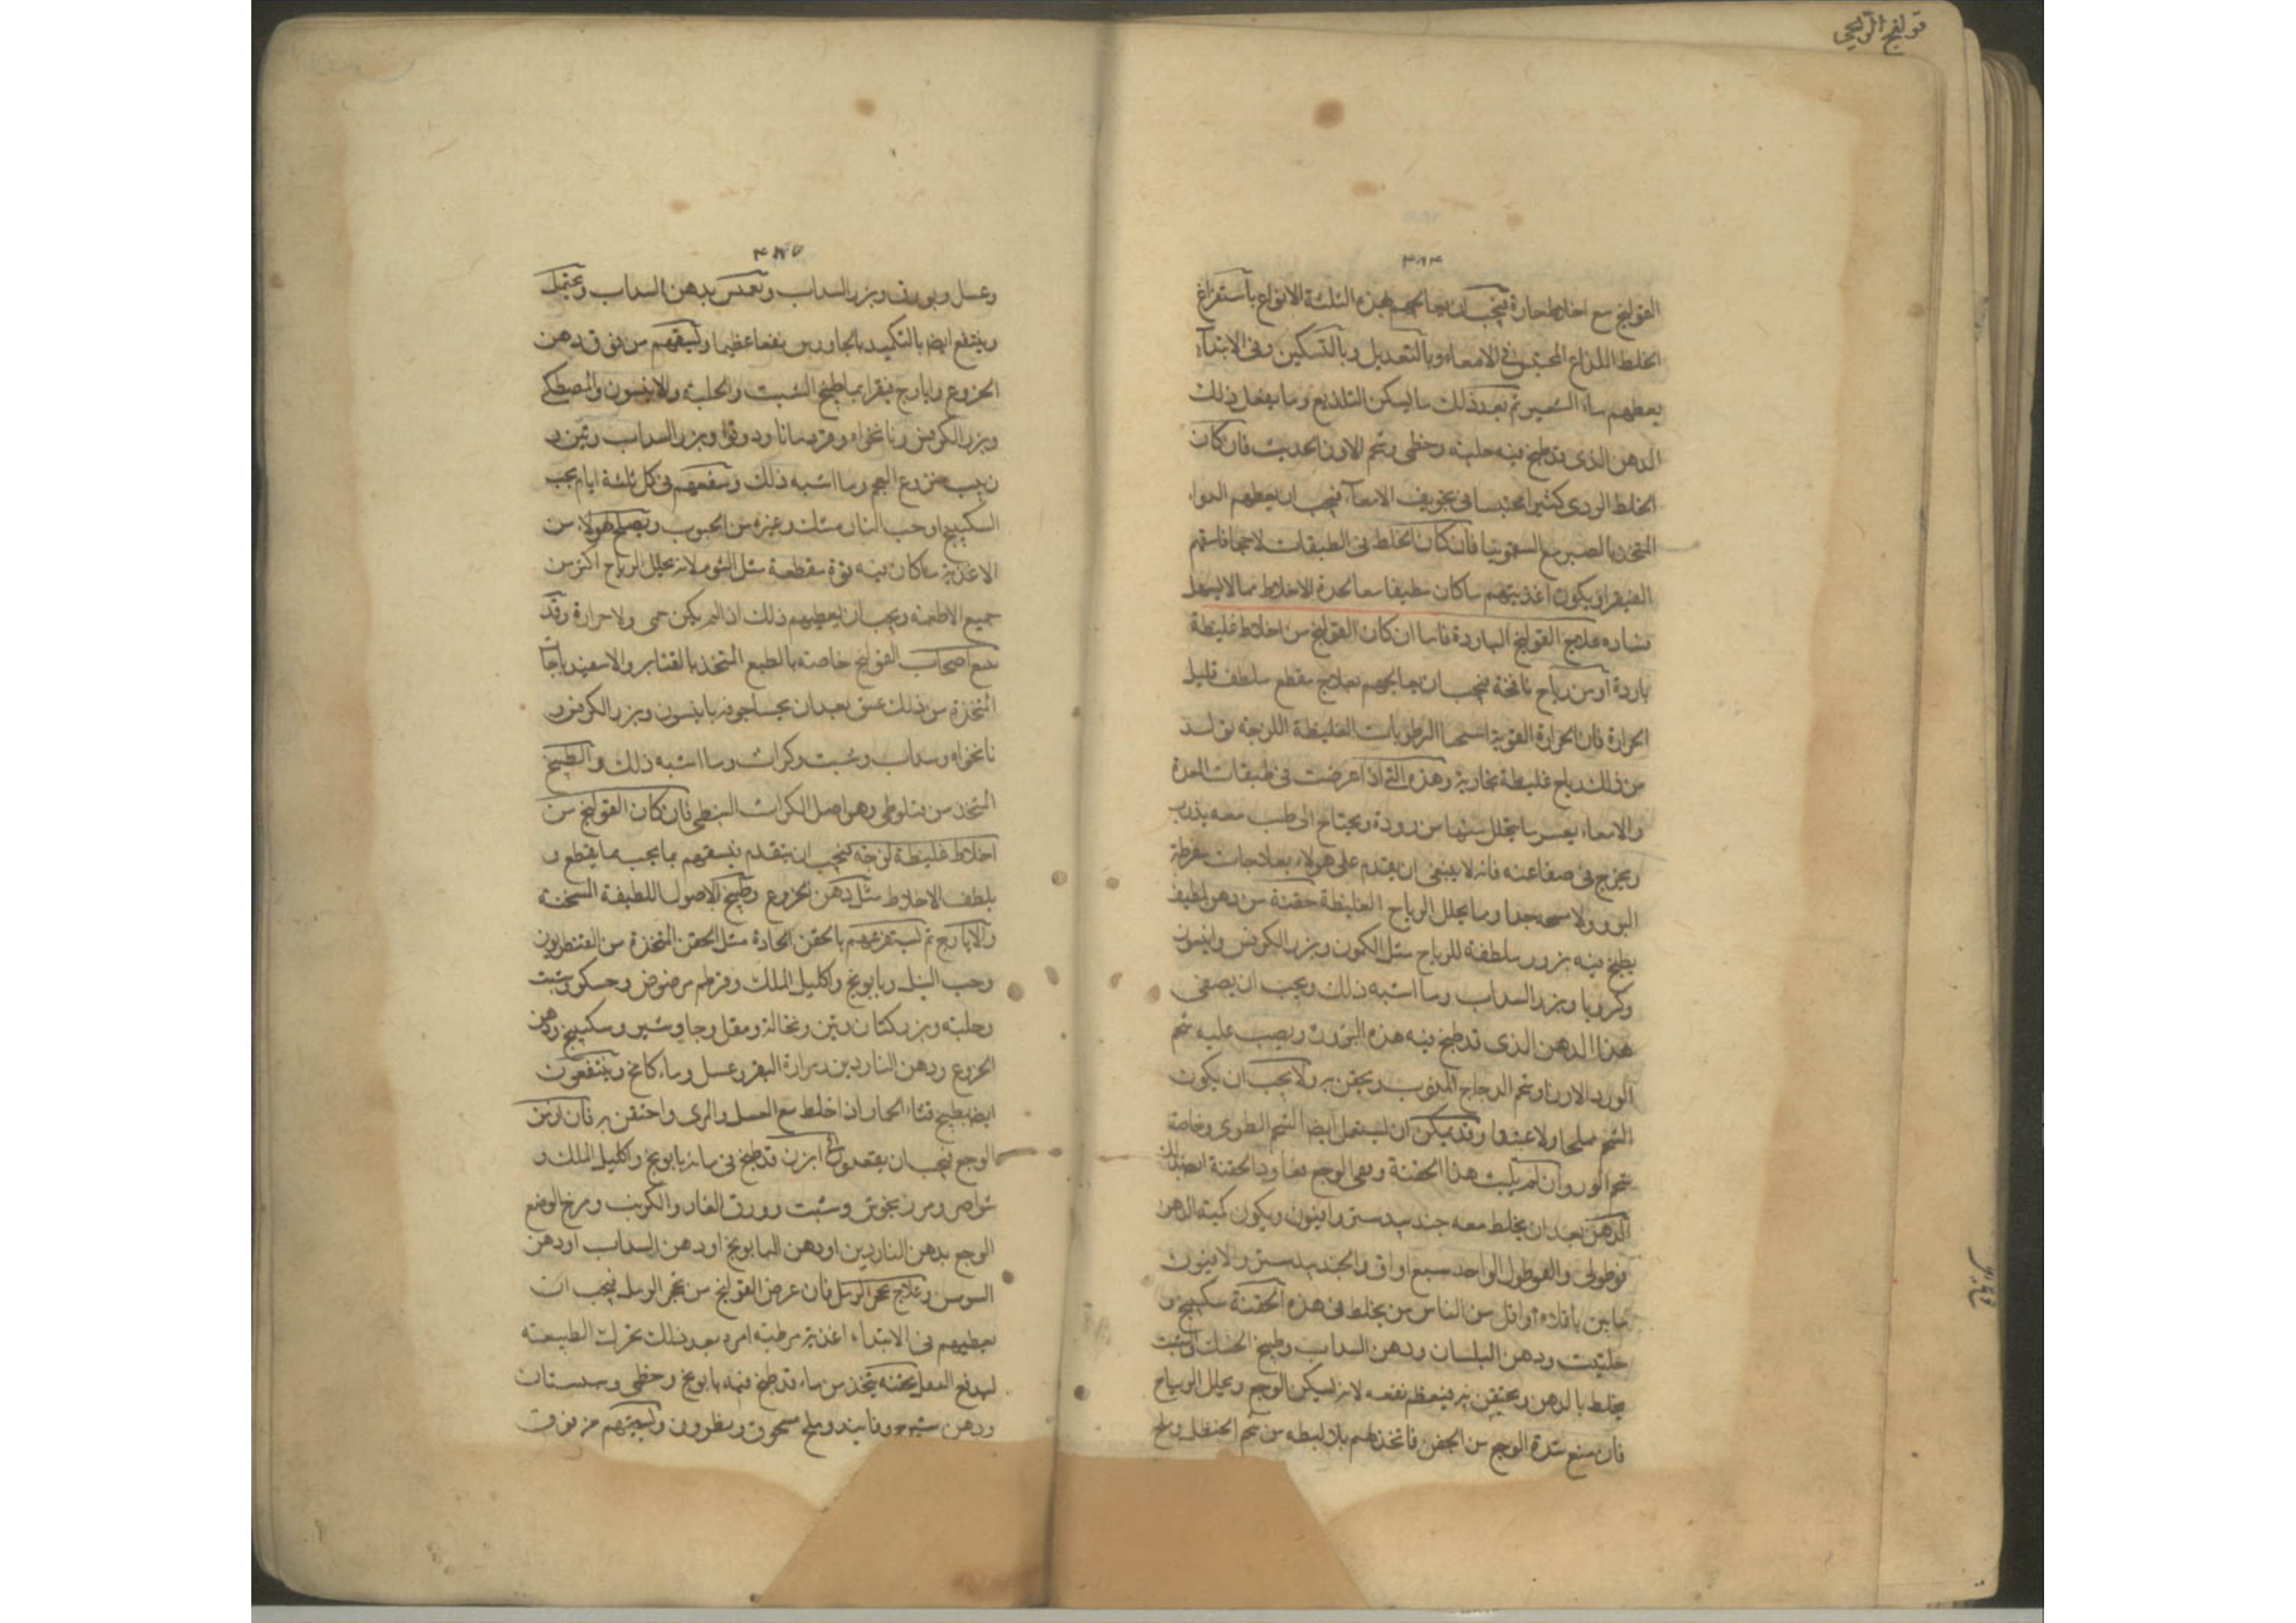 قولنج الريحى
القولنج مع اخلاط حارة فيجب ان يعالجهم هذه الثلثة الانواع باستفراغ
الخلط اللذاع المحتبس فى الامعاء وبالتعديل وبالتسكين وفى الابتداء
يعطيهم ماء الشعير ثم بعد ذلك ما يسكن التلذيع وما يفعل ذلك
الدهن الذى قد طبخ فيه حلبة وخطمى وشحم الاوز الحديث فان كان
الخلط الردى كثيرا محتبسا فى تجويف الامعاء فيجب ان يعطيهم الدواء
المتخذ بالصبر مع السقمونيا فان كان الخلط فى الطبقات لاحجا فاسقهم
الفيقرا ويكون اغذيتهم ما كان مطيفا معا لحدة الاخلاط مما لا يسهل
فساده علاج القولنج الباردة فاما ان كان القولنج من اخلاط غليظة
باردة او من رياح نافخة فيجب ان يعالجهم بعلاج مقطع ملطف قليل
الحرارة فان الحرارة القوية الرطوبات الغليظة اللزجة تولد
من ذلك رياح غليظة بخارية وهذه التى اذا عرضت فى طبقات المعدة
والامعاء يعسر ما يتحلل منها من رودة ويحتاج الى طب معه بذرب
ويخرج فى صناعته فانه لا ينبغى ان يقدم على هولاء بعلاجات مفرطة
البرو ولا جدا وما يحلل الرياح الغليظة حقنة من دهن لطيف
يطبخ فيه بزور ملطفة للرياح مثل الكمون وبزر الكرفس وانيسون
وكرويا وبزر السداب وما اشبه ذلك ويجب ان يصفى
هذا الدهن الذى قد طبخ فيه هذه البزور ويصب عليه شحم
الاوز او شحم الدجاج المذوب ويحقن به ولا يجب ان يكون
الشحم مملحا ولا عتيقا وقد يمكن ان يستعمل ايضا الشحم الطرى وخاصة
شحم الوز وان لم يلبث هذا الحقنة وبقى الوجع فعاود الحقنة
الدهن بعد ان يخلط معه جندبيدستر وافيون ويكون كمية الدهن
قوطولى والقوطول الواحد سبع اواق والجندبيدستر والافيون
ما بين باقلاه او اقل من الناس من يخلط فى هذه الحقنة سكبينج و
حلتيت ودهن البلسان ودهن السداب وطبيخ الحسك والشبت
يخلط بالدهن ويحتقن به فيعظم نفعه لانه يسكن الوجع ويحلل الرياح
فان منع شدة الوجع من الحقن فاتخذ لهم بلاليطه من شحم الحنظل وملح
وعسل وبورق وبزر السداب وتغمس بدهن السداب ويحتمل
وينتفع ايضا بالتكميد بالجاورس نفعا عظيما ويسقهم من فوق دهن
الخروع وايارج فيقرا بماء طبيخ الشبت والحلبة والانيسون والمصطكى
وبزر الكرفس ونانخواه وقردمانا ودوقوا وبزر السداب وتين و
زبيب منزوع العجم وما اشبه ذلك وسقهم فى كل ثلثة ايام بحب
السكبينج او حب النار مثلث وغيره من الحبوب ويصلح لهولاء من
الاغذية ما كان فيه قوة مقطعة مثل الثوم لانه يحلل الرياح اكثر من
جميع الاطعمة ويجب ان يعطيهم ذلك اذا لم يكن حمى ولا حرارة وقد
اصحاب القولنج خاصة بالطبع المتخذ بالقنابر والاسفيدباجات
المتخذة من ذلك عتق بعد ان يحسا جوفه بانيسون وبزر الكرفس و
نانخواه وسداب وشبت وكراث وما اشبه ذلك والطبيخ
المتخذ من وهو اصل الكراث النبطى فان كان القولنج من
اخلاط غليظة لزجة فيجب ان يتقدم فيسقهم ما يجب مما يقطع و
يلطف الاخلاط مثل دهن الخروع وطبيخ الاصول اللطيفة المسخنة
والايارج ثم يستفرغهم بالحقن الحادة مثل الحقن المتخذة من القنطوريون
وحب النيل وبابونج واكليل الملك وقرطم مرضوض وحسك وشبت
وحلبة وبزر كتان وتين ونخالة ومقل وجاوشير وسكبينج ودهن
الخروع ودهن الناردين ومرارة البقر وعسل وماء كامخ وينتفعون
ايضا بطبيخ قثاء الحمار اذا خلط مع العسل والمرى واحتقن به فان ازمن
الوجع فيجب ان يقعدوا فى ابزن قد طبخ فى مائه بابونج واكليل الملك و
شواصر ومرزنجوش وشبت وورق الغار والكرنب ومرخ الوضع
الوجع بدهن الناردين او دهن البابونج او دهن السداب او دهن
السوسن وعلاج تحجر الزبل فان عرض القولنج من تحجر الزبل فيجب ان
يعطيهم فى الابتداء اغذية مرطبة امره بعد ذلك تحرك الطبيعة
لدفع الثفل بحقنة يتخذ من ماء قد طبخ فيه بابونج وخطمى وسبستان
ودهن شيرج وفانيذ وملح مسحوق ونطرون ويسقيهم من فوق